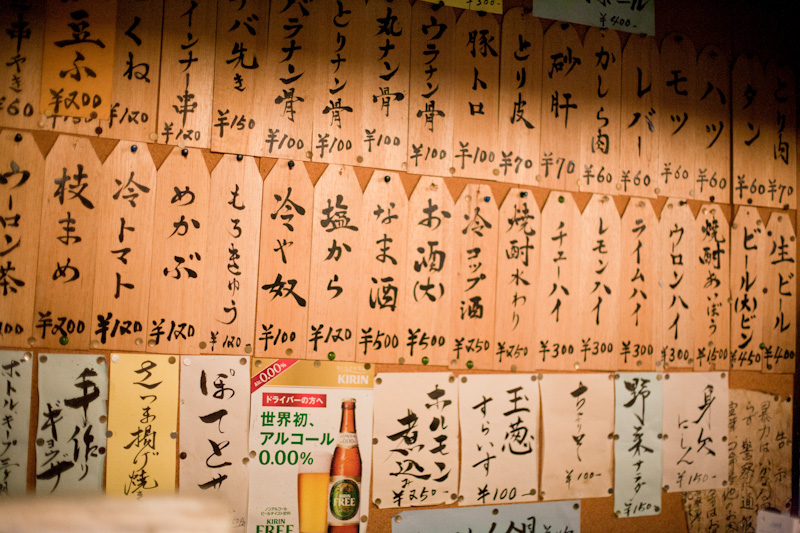 ¥400-
とり肉 ¥70
タン ¥60
ハツ ¥60
モツ ¥60
レバー ¥60
かしら肉 ¥60
砂肝 ¥70
とり皮 ¥70
豚トロ ¥100
ウラナン骨 ¥100
丸ナン骨 ¥100
とりナン骨 ¥100
バラナン骨 ¥100
ハラ先き ¥150
インナー串 ¥120
つくね ¥120
豆ふ ¥200
串やき ¥60
生ビール ¥400
ビール(大)ビン ¥450
焼酎あいぼう ¥1500
ウロンハイ ¥300
ライムハイ ¥300
レモンハイ ¥300
チューハイ ¥300
焼酎水わり ¥250
冷コップ酒 ¥250
お酒(大) ¥500
なま酒 ¥500
塩から ¥120
冷や奴 ¥100
もろきゅう ¥120-
めかぶ ¥120
冷トマト ¥120
枝まめ ¥200
ウーロン茶
身欠にしん ¥150-
野菜 ¥150-
¥100-
玉葱すらいす ¥100-
ホルモン煮込み ¥250-
0.00%
KIRIN
ドライバーの方へ
世界初、
アルコール
0.00%
ノンアルコール
KIRIN
FREE
KIRIN
FREE
ぽてとサ
さつま揚げ焼
手作りギョウザ
ボトルキープ